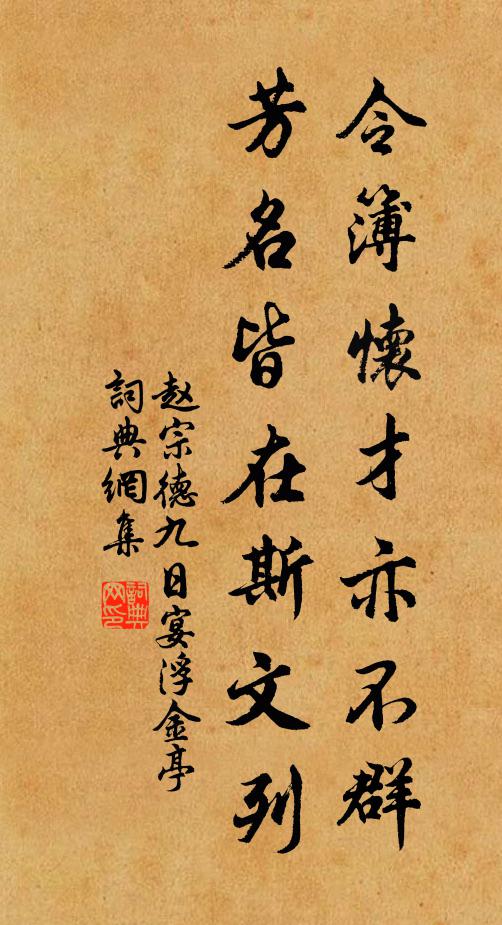 令簿懷才亦不群
芳名皆在斯文列
赵宗德九日宴浮金亭
詞典網集
詞典网印